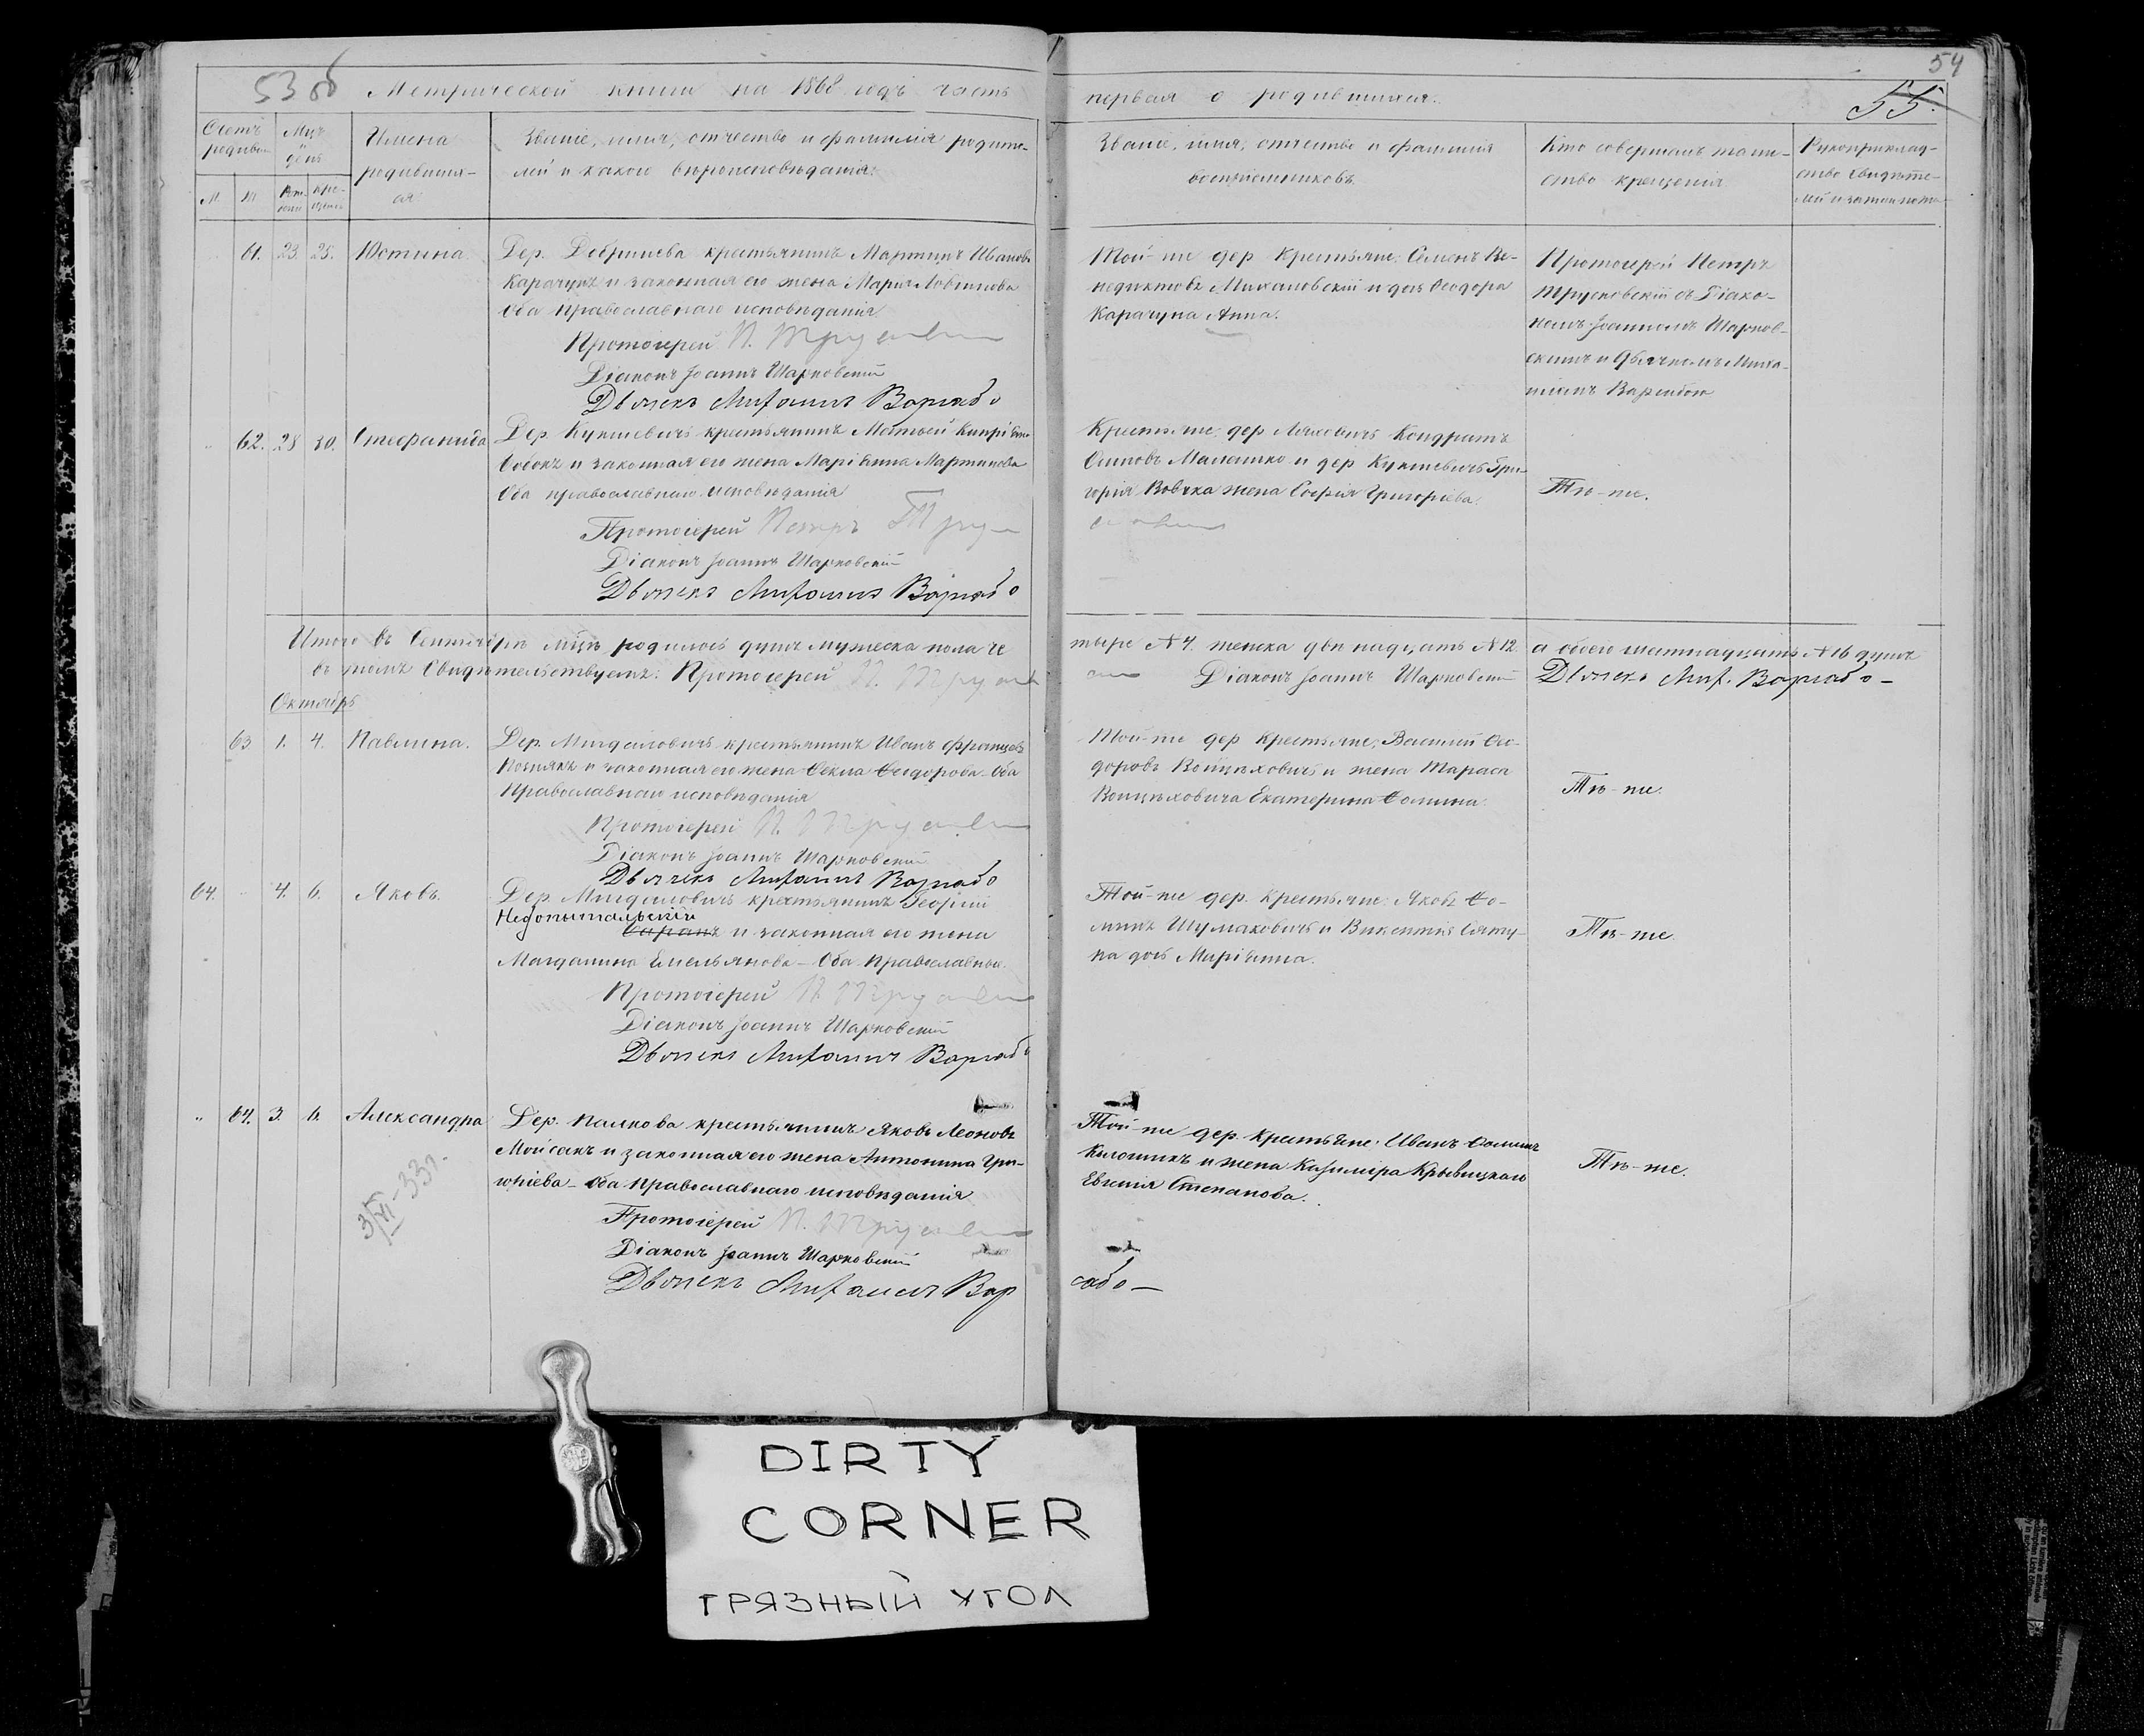 53 об Метрической книги на 1868 годъ часть
первая о родившихся.
54
55.
Счетъ родивш. Мцъ и день Имена родившихся. Званіе, имя, отчество и фамилія родителей и какого вѣроисповѣданія.
М. Ж.
Званіе, имя, отчество и фамилія воспріемниковъ.
Кто совершалъ таинство крещенія
Рукоприкладство свидѣтелей
61. 23. 25. Юстина Дер. крестьянинъ Мартинъ Ивановъ
Карачунъ и законная его жена Марія
Оба православнаго исповѣданія
Протоіерей П.
Діаконъ Іоаннъ Шарковскій
Дьячекъ Михаилъ
Той-же дер. крестьяне: Семенъ Ве-
недиктовъ Михаловскій и дочь Ѳеодора
Карачуна Анна.
Протоіерей Петръ
съ Діако-
номъ Іоанномъ Шарков-
скимъ и Дьячкомъ Миха-
иломъ
62. 28 30. Стефанида Дер. Кукшевичъ крестьянинъ Матвей
и законная его жена Маріанна Мартинова
Оба православнаго исповѣданія
Протоіерей Петръ
Діаконъ Іоаннъ Шарковскій
Дьячекъ Михаилъ
Крестьяне: дер. Ляховичъ Кондратъ
Осиповъ и дер. Кукшевичъ Гри-
горія жена Софія Григоріева.
Тѣ-же.
Итого въ Сентябрѣ мцѣ родилось душъ мужеска пола че
тыре №4. женска двѣнадцать №12. а обоего шестнадцать №16 душъ
въ томъ свидѣтельствуемъ: Протоіерей П.
Діаконъ Іоаннъ Шарковскій Дьячекъ Мих.
Октябрь
63 1. 4. Павлина. Дер. Мигдаловичъ крестьянинъ Иванъ Францовъ
Познякъ и законная его жена Ѳекла Ѳеодорова Оба
Православнаго исповѣданія
Протоіерей П.
Діаконъ Іоаннъ Шарковскій
Дьячекъ Михаилъ
Той-же дер. крестьяне; Василій Ѳео-
доровъ Войцѣховичъ и жена Тараса
Войцѣховича Екатерина Ѳомина.
Тѣ-же.
64. 4. 6. Яковъ. Дер. Мигдаловичъ крестьянинъ Георгій
и законная его жена
Магдалина Емельянова - Оба Православные.
Протоіерей П.
Діаконъ Іоаннъ Шарковскій
Дьячекъ Михаилъ
Той-же дер. крестьяне: Яковъ Ѳо-
минъ Шумаковичъ и Викентія
дочь Маріанна.
Тѣ-же.
64. 3. 6. Александра Дер. Палкова крестьянинъ Яковъ Леоновъ
Мойсакъ и законная его жена Антонина Гри-
горіева - Оба Православнаго исповѣданія
Протоіерей П.
Діаконъ Іоаннъ Шарковскій
Дьячекъ Михаилъ
Той-же дер. крестьяне: Иванъ Ѳоминъ
и жена Казиміра Крывицкаго
Евгенія Степанова.
Тѣ-же.
3/VI-33г.
DIRTY
CORNER
ГРЯЗНЫЙ УГОЛ